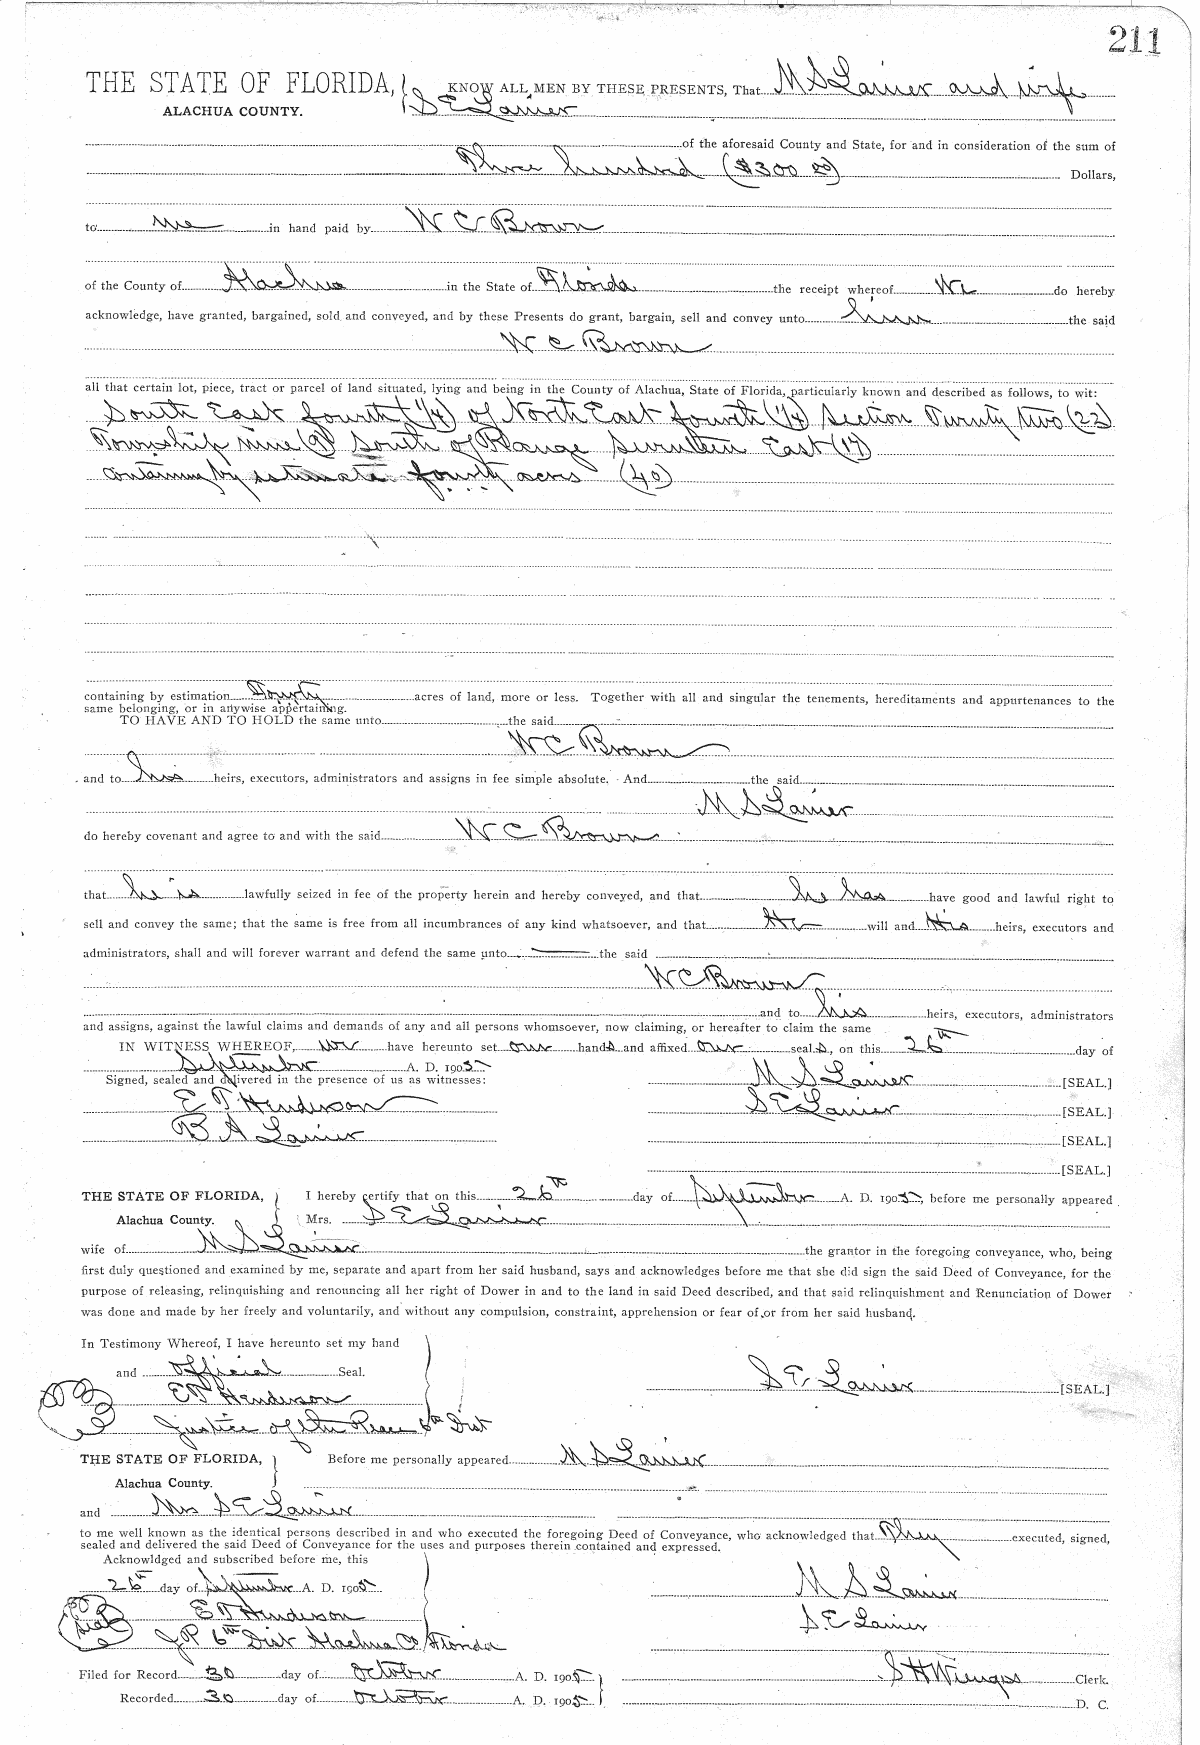 211
THE STATE OF FLORIDA, KNOW ALL MEN BY THESE PRESENTS, That M S Lanier and wife
ALACHUA COUNTY. S E Lanier
of the aforesaid County and State, for and in consideration of the sum of
Three hundred ($300 00) Dollars,
to me in hand paid by W C Brown
of the County of Alachua in the State of Florida the receipt whereof We do hereby
acknowledge, have granted, bargained, sold and conveyed, and by these Presents do grant, bargain, sell and convey unto him the said
W C Brown
all that certain lot, piece, tract or parcel of land situated, lying and being in the County of Alachua, State of Florida, particularly known and described as follows, to wit:
South East fourth (1/4) of North East fourth (1/4) Section Twenty two (22)
Township nine (9) South of Range Seventeen East (17)
containing by estimate fourty acres (40)
containing by estimation Fourty acres of land, more or less. Together with all and singular the tenements, hereditaments and appurtenances to the
same belonging, or in anywise appertaining.
TO HAVE AND TO HOLD the same unto the said
W C Brown
and to his heirs, executors, administrators and assigns in fee simple absolute. And the said
M S Lanier
do hereby covenant and agree to and with the said W C Brown
that he is lawfully seized in fee of the property herein and hereby conveyed, and that he has have good and lawful right to
sell and convey the same; that the same is free from all incumbrances of any kind whatsoever, and that He will and His heirs, executors and
administrators, shall and will forever warrant and defend the same unto the said
W C Brown
and to his heirs, executors, administrators
and assigns, against the lawful claims and demands of any and all persons whomsoever, now claiming, or hereafter to claim the same
IN WITNESS WHEREOF, we have hereunto set our hands and affixed our seals, on this 26th day of
September A. D. 1905
Signed, sealed and delivered in the presence of us as witnesses: M S Lanier [SEAL.]
E T Henderson S E Lanier [SEAL.]
B A Lanier [SEAL.]
[SEAL.]
THE STATE OF FLORIDA, I hereby certify that on this 26th day of September A. D. 1905, before me personally appeared
Alachua County. Mrs. S E Lanier
wife of M S Lanier the grantor in the foregoing conveyance, who, being
first duly questioned and examined by me, separate and apart from her said husband, says and acknowledges before me that she did sign the said Deed of Conveyance, for the
purpose of releasing, relinquishing and renouncing all her right of Dower in and to the land in said Deed described, and that said relinquishment and Renunciation of Dower
was done and made by her freely and voluntarily, and without any compulsion, constraint, apprehension or fear of or from her said husband.
In Testimony Whereof, I have hereunto set my hand
and official Seal. S E Lanier [SEAL.]
E T Henderson
Justice of the Peace 6th Dist
THE STATE OF FLORIDA, Before me personally appeared M S Lanier
Alachua County.
and Mrs S E Lanier
to me well known as the identical persons described in and who executed the foregoing Deed of Conveyance, who acknowledged that They executed, signed,
sealed and delivered the said Deed of Conveyance for the uses and purposes therein contained and expressed.
Acknowldged and subscribed before me, this
26th day of September A. D. 1905 M S Lanier
E T Henderson S E Lanier
Seal
J P 6th Dist Alachua Co Florida
Filed for Record 30 day of October A. D. 1905 S H Wienges Clerk.
Recorded 30 day of October A. D. 1905 D. C.